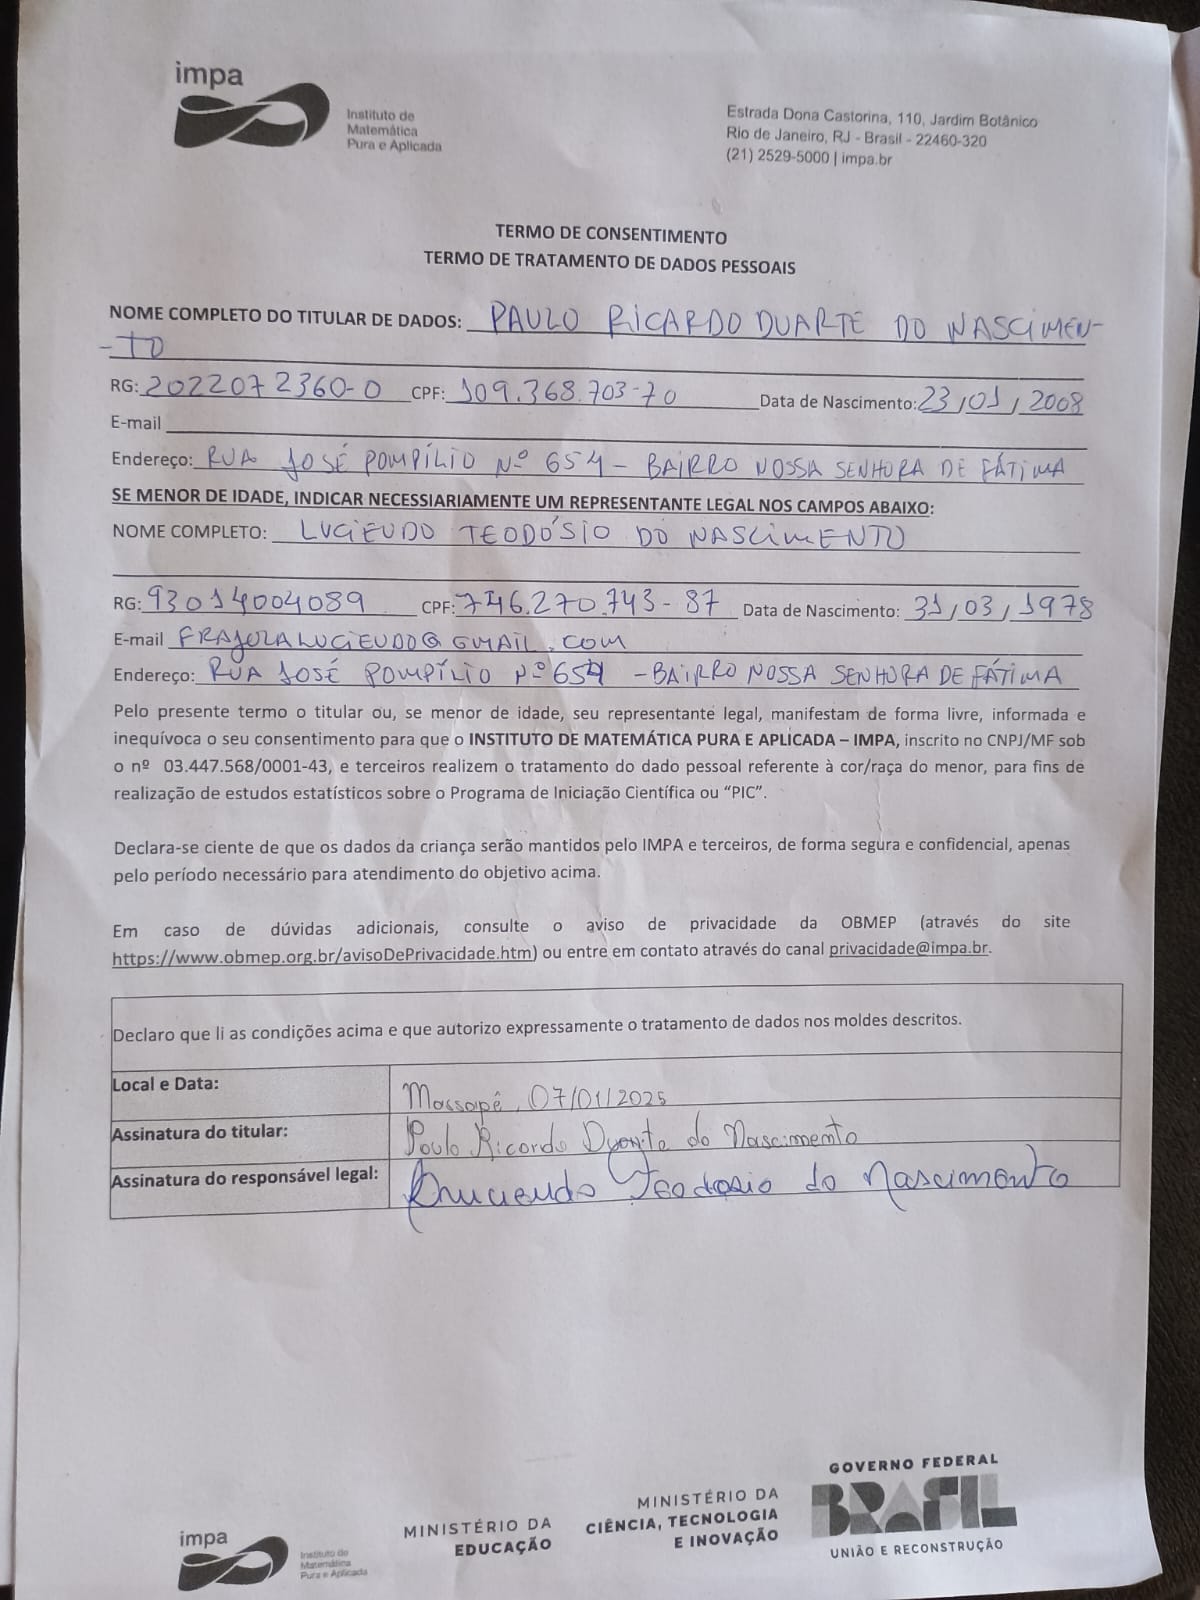 impa
Instituto de
Matemática
Pura e Aplicada
Estrada Dona Castorina, 110, Jardim Botânico
Rio de Janeiro, RJ - Brasil - 22460-320
(21) 2529-5000 | impa.br
TERMO DE CONSENTIMENTO
TERMO DE TRATAMENTO DE DADOS PESSOAIS
NOME COMPLETO DO TITULAR DE DADOS: PAULO RICARDO DUARTE DO NASCIMEN-
-TO
RG: 2022072360-0 CPF: 109.368.703-70 Data de Nascimento: 23/01/2008
E-mail
Endereço: RUA JOSÉ POMPÍLIO Nº 654 - BAIRRO NOSSA SENHORA DE FÁTIMA
SE MENOR DE IDADE, INDICAR NECESSIARIAMENTE UM REPRESENTANTE LEGAL NOS CAMPOS ABAIXO:
NOME COMPLETO: LUCIEUDO TEODÓSIO DO NASCIMENTO
RG: 93014004089 CPF: 746.270.743-87 Data de Nascimento: 31/03/1978
E-mail FRAJOLALUCIEUDO@GMAIL.COM
Endereço: RUA JOSÉ POMPÍLIO Nº 654 - BAIRRO NOSSA SENHORA DE FÁTIMA
Pelo presente termo o titular ou, se menor de idade, seu representante legal, manifestam de forma livre, informada e
inequívoca o seu consentimento para que o INSTITUTO DE MATEMÁTICA PURA E APLICADA – IMPA, inscrito no CNPJ/MF sob
o nº 03.447.568/0001-43, e terceiros realizem o tratamento do dado pessoal referente à cor/raça do menor, para fins de
realização de estudos estatísticos sobre o Programa de Iniciação Científica ou “PIC”.
Declara-se ciente de que os dados da criança serão mantidos pelo IMPA e terceiros, de forma segura e confidencial, apenas
pelo período necessário para atendimento do objetivo acima.
Em caso de dúvidas adicionais, consulte o aviso de privacidade da OBMEP (através do site
https://www.obmep.org.br/avisoDePrivacidade.htm) ou entre em contato através do canal privacidade@impa.br.
Declaro que li as condições acima e que autorizo expressamente o tratamento de dados nos moldes descritos.
Local e Data: Massapê, 07/01/2025
Assinatura do titular: Paulo Ricardo Duarte do Nascimento
Assinatura do responsável legal: Lucieudo Teodosio do Nascimento
impa
Instituto de
Matemática
Pura e Aplicada
MINISTÉRIO DA
EDUCAÇÃO
MINISTÉRIO DA
CIÊNCIA, TECNOLOGIA
E INOVAÇÃO
GOVERNO FEDERAL
BRASIL
UNIÃO E RECONSTRUÇÃO